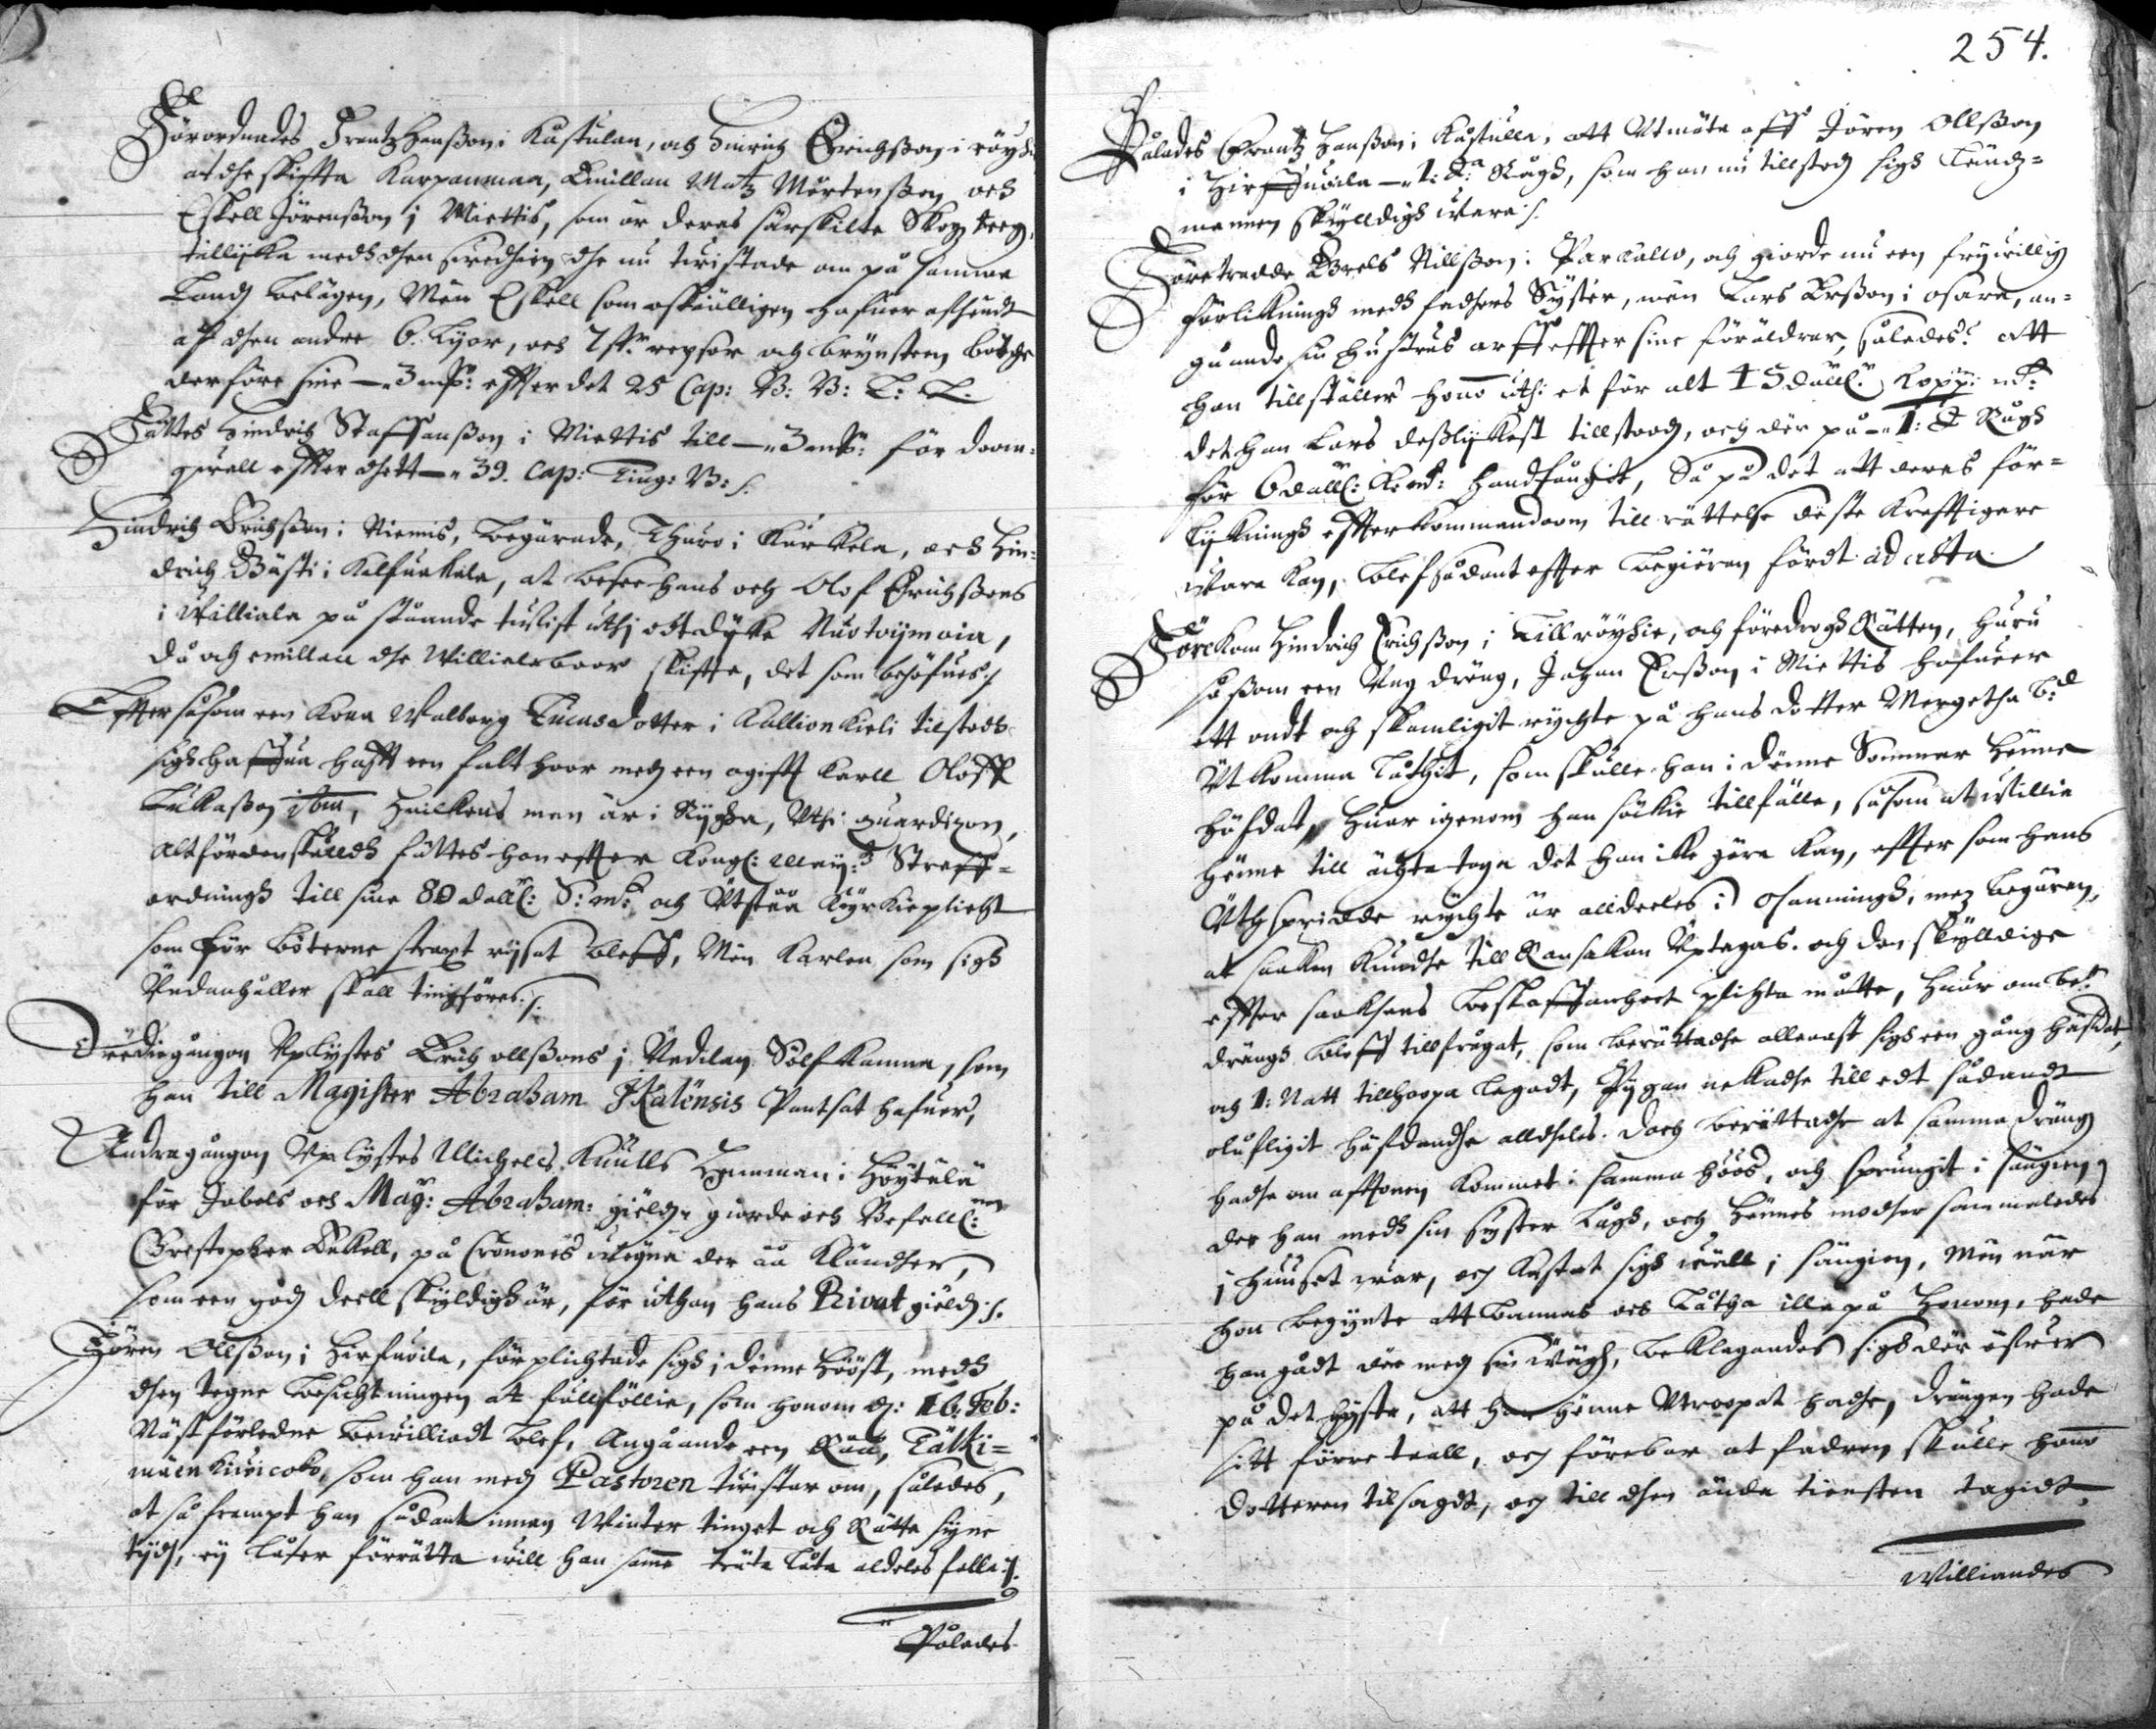 Förordnades Frantz Hanßon i Kastulan, och Hinrich Erichßon i röyh
at dhe skiffta Karpanmaa, Emillan Matz Mårtenßon och
Eskell Jörenßon j Miettis, som är deras särskilte Skog teeg,
tillijka medh dhen swedhien dhe nu twistade om på samma
Landh belägen, Män Eskell som oskiälligen hafuer afhendt
af dhen andre 6. Lijor, och 7 st: repsor och brynsteen böthe
derföre sine — 3 mk: effter det 25 Cap: B: B: L: L.
Fältes Hindrich Staffanßon i Miettis till — 3 mk: för doom-
qwall effter dhett — 39. Cap: Ting: B: /.
Hindrich Erichßon i Niemis, begärade, Thuro i Kurkela, och Hin-
drich Bästi i Kalfuakala, at besee hans och Olof Erichßons
i Williala på stuande twist uthj ett dyke Nuotoijmoia,
då och emillan dhe Williala boor skiffte, det som behöfues /
Effter såsom een Kona Walborg Lucasdotter i Kallionkieli tilstodh
sigh haffua hafft een falt hoor medh een ogifft karll Oloff
Lukaßon ibm, huilkens man är i Rydhen, vthi guardizon,
Altfördenskuldh fältes hon effter Kongl: May:tz Straff-
ordningh till sine 80 dall: S: m: och Utstå Kyrkieplicht
som för böterne straxt rijsat bleff, Män Karlen som sigh
Undanhåller skall tingföres /.
Trediegången Vplystes Erich ollßons j Nedilax Sölfkanna, som
han till Magister Abraham Ikalensis Pantsat hafuer,
Andragången Vplystes Michels Knutts Hemman i Höytälä
för Jabels och Mag: Abraham: gieldh giorde och Befall:
Christopher Eskell, på Cronones wägna der åå Kländher,
som een godh deell skyldigh är, för uthan hans Rivat gieldh /.
Jören Ollßon i Hirfuoila, förplichtade sigh i denne Hööst, medh
dhen tagne besichtningen at fullföllie, som honom d: 16. Feb:
Näst förledne bewilliadt blef, Angående een Råå, Tätki-
mäen kiuicoko, som han medh Pastoren twistar om, således,
at så frampt han sådant innan Winter tinget och Rätta syne
tijdh, ey låter förrätta will han samma träta låta aldeles falla /.
Pålades

254.
Pålades Frantz Hanßon i Kastulla, att Vtmäta aff Jören Ollßon
i Hirffuoila — 1: t:a Rågh, som han nu tillstodh sigh Ländz-
mannen skylldigh wara /.
Företrädde Brels Nillßon i Parkallo, och giorde nu een frijwilligh
förlikningh medh fadhers Syster, män Lars Erßon i osara, an-
gåande sin hustrus arff effter sine föräldrar, således? att
han tillställer hono uthi et för alt 15 dall: Kopp: m:
det han Lars desslykest tillstoodh, och där på — 1: t Rågh
för 6 dall: K: m: handfångit, Så på det att deras för-
lykningh effterkommandom till rättelse deste krefftigare
wara kan, blef sådant effter begieran fördt ad acta.
Förekom Hindrich Erichßon i Tillröyhie, och föredrogh Rätten, huru
såßom een Vng dräng, Johan Erßon i Miettis hafuer
ett ondt och skamligit rychte på hans dotter Margetha b:d
Vtkomma låthit, som skulle han i denne Sommar henne
häfdat, huar igenom han sökie tillfälle, såsom at willia
henne till ächta taga det han ike göra kan, effter som hans
Vthspridde rychte är alldeeles i osanningh, medh begäran,
at saaken kundhe till Ransakan Vptagas. och den skylldige
effter saaksens beskaffanheet plichta måtte, huar om be:te
drängh bleff tillfrågat, som berättadhe allenast sigh een gång häfdat,
och 1: Natt tillhoopa legadt, Pygan nekadhe till edt sådandt
olufligit häfdandhe alldheles. doch berättadhe at samma dräng
hadhe om afftonen kommet i samma hoos, och sprungit i sängien,
der han medh sin syster lågh, och hennes modher sammaledes
j huuset war, och kastat sigh wäll j sängien, Män når
hon begynte att bannas och låtha illa på honom, hade
han gådt där medh sin wägh, beklagandes sigh där öfwer
på det hyste, att han henne Vtroopat hadhe, drängen hade
sitt förre taall, och förebar at fadren skulle hono
dotteren tilsagdt, och till dhen ända tiensten tagidt,
Williandes